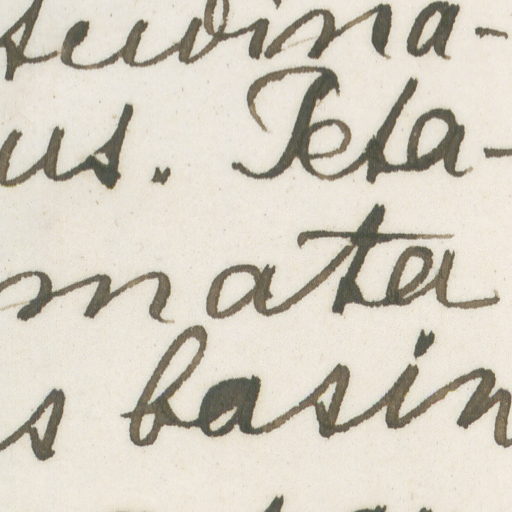 tudina-
us. Peta-
mata
s basin